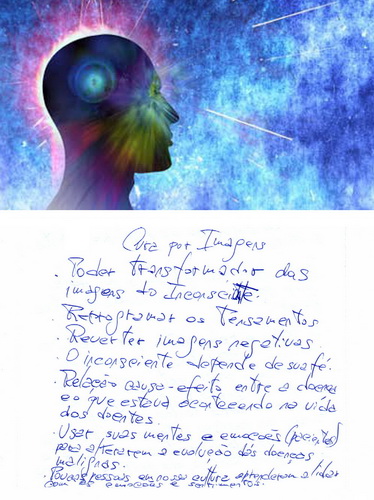 Cura por Imagens
. Poder transformador das
imagens do Inconsciente.
. Reprogramar os Pensamentos
. Reverter imagens negativas.
. O inconsciente depende de sua fé.
. Relação causa-efeito entre a doença
e o que estava acontecendo na vida
dos doentes.
. Usar suas mentes e emoções (pacientes)
para alterarem a evolução das doenças
malignas.
. Poucas pessoas em nossa cultura aprenderam a lidar
com as emoções e sentimentos.